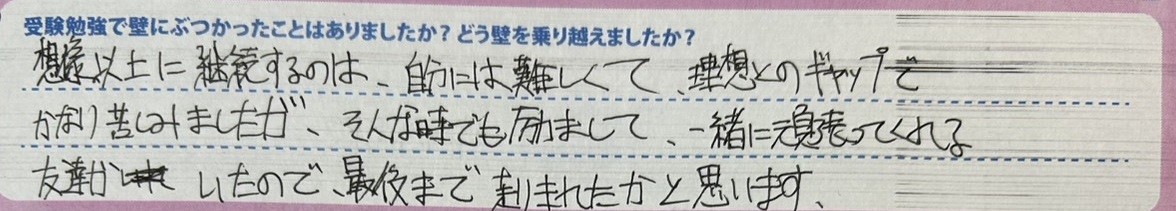 受験勉強で壁にぶつかったことはありましたか？どう壁を乗り越えましたか？
想像以上に継続するのは、自分には難しくて、理想とのギャップで
かなり苦しみましたが、そんな時でも励まして、一緒に頑張ってくれる
友達がいたので、最後まで走りきれたかと思います、